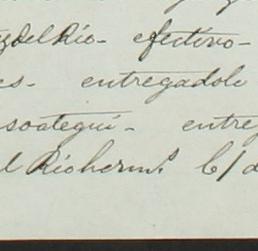 delRio- efectivo-
es- entregadole
soategui- entre
l Rioherm.ˢ C/d